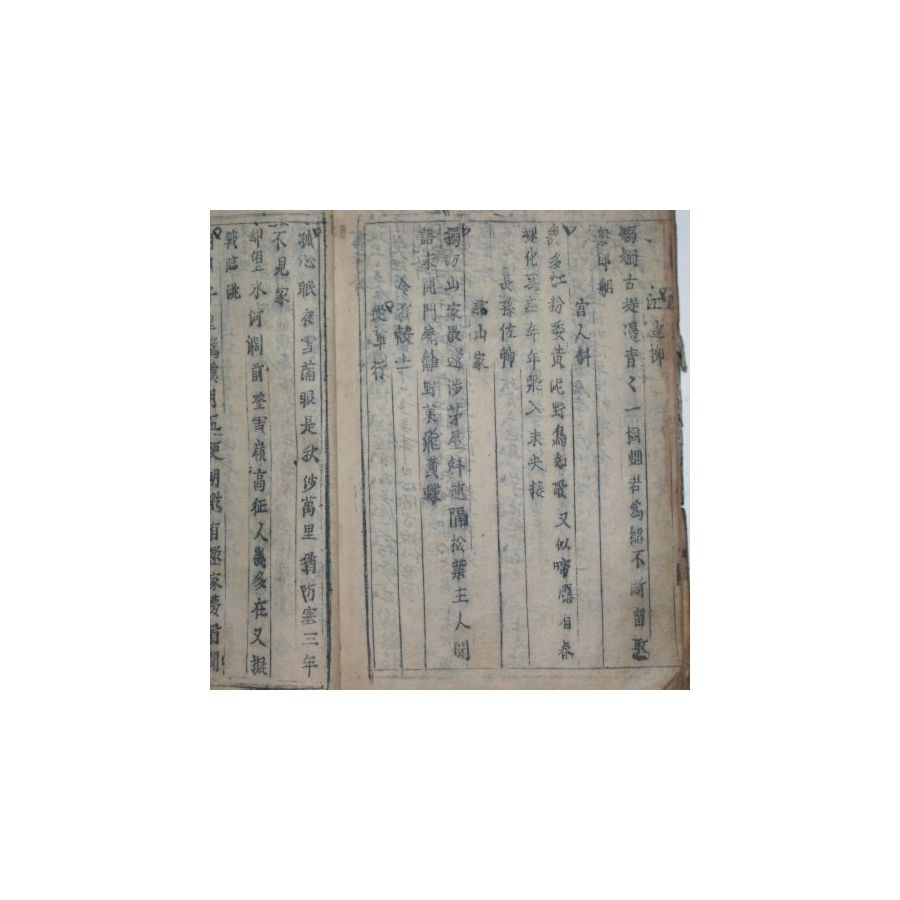 江邊柳
裊裊古堤邊青々一樹烟若為絲不斷留取
繫郎船
宮人斜
幾多紅粉委黃泥野鳥如歌又似啼應有春
魂化為燕年年飛入未央棲
長孫佐輔
山家
獨訪山家歇還涉茅屋斜連隔松葉主人聞
語未開門繞籬野菜飛黃蝶
令狐楚
從軍行
孤心眠夜雪滿眼是秋沙萬里猶防塞三年
不見家
却望冰河濶前登雪嶺高征人幾多在又擬
戰臨洮
五更朝
有還家夢